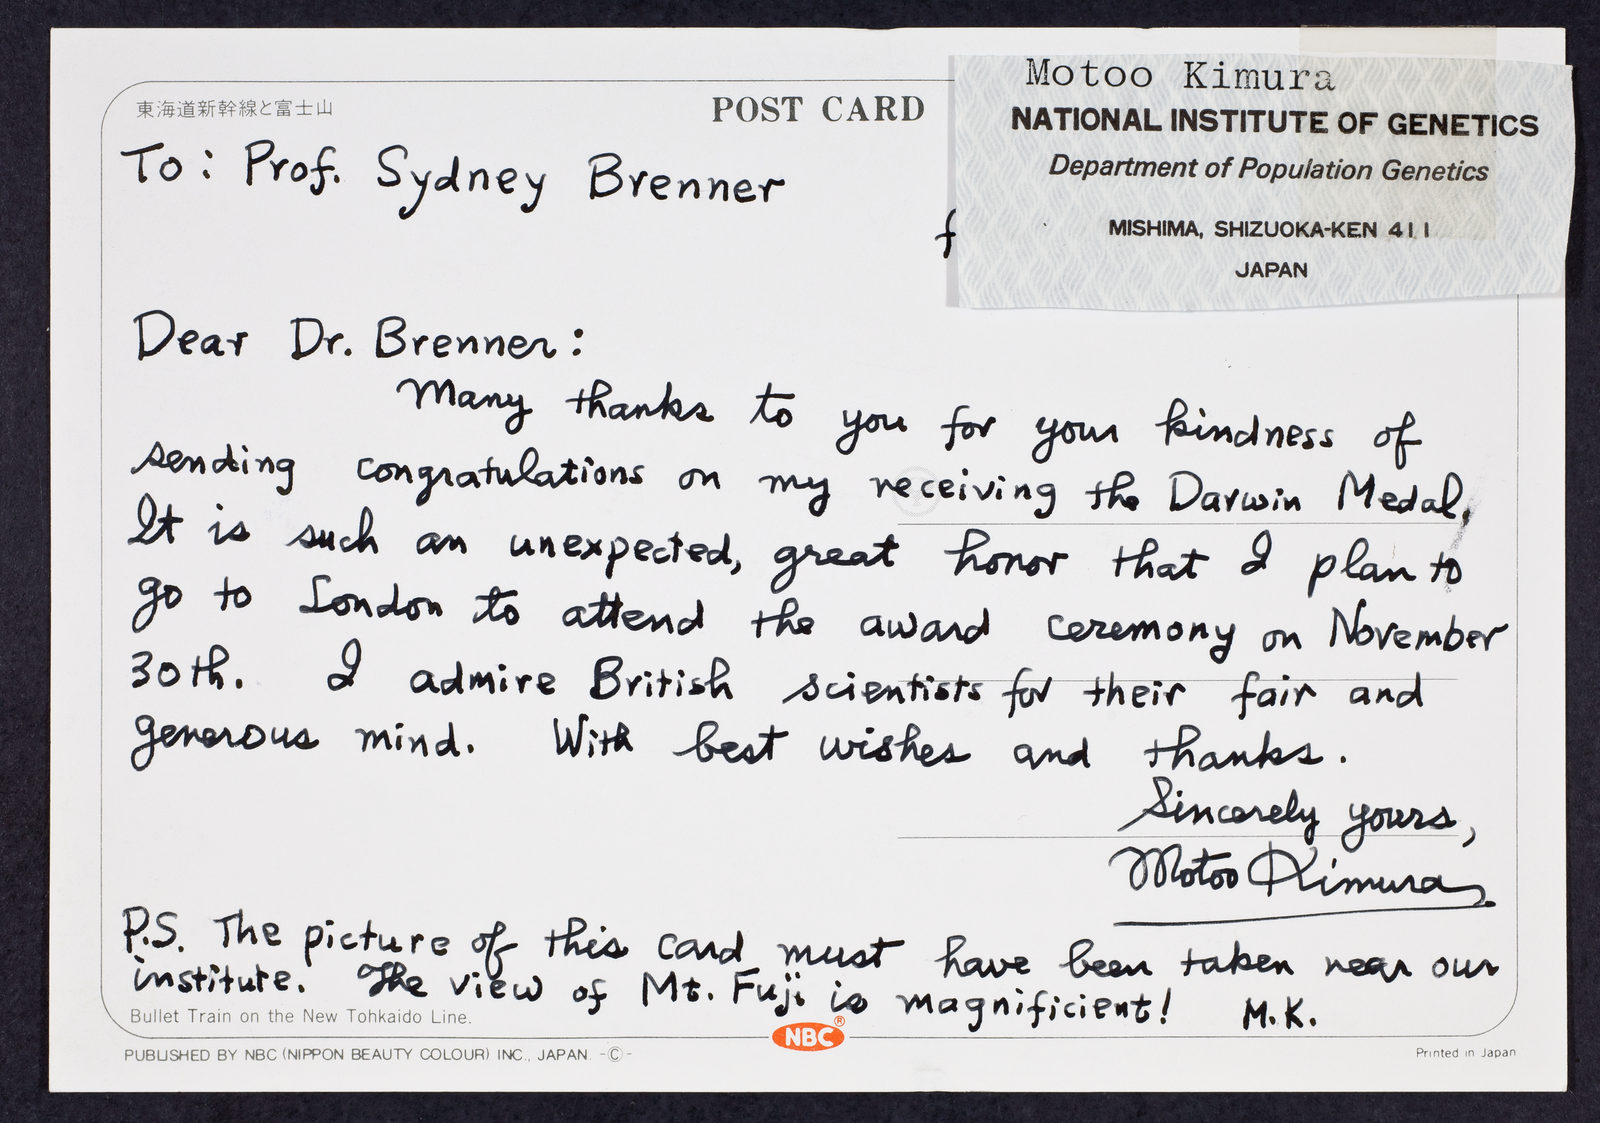 東海道新幹線と富士山
POST CARD
Motoo Kimura
NATIONAL INSTITUTE OF GENETICS
Department of Population Genetics
MISHIMA, SHIZUOKA-KEN 411
JAPAN
To: Prof. Sydney Brenner
f
Dear Dr. Brenner:
Many thanks to you for your kindness of
sending congratulations on my receiving the Darwin Medal.
It is such an unexpected, great honor that I plan to
go to London to attend the award ceremony on November
30th. I admire British scientists for their fair and
generous mind. With best wishes and thanks.
Sincerely yours,
Motoo Kimura
P.S. The picture of this card must have been taken near our
institute. The view of Mt. Fuji is magnificient! M.K.
Bullet Train on the New Tohkaido Line.
NBC®
PUBLISHED BY NBC (NIPPON BEAUTY COLOUR) INC., JAPAN. -Ⓒ-
Printed in Japan